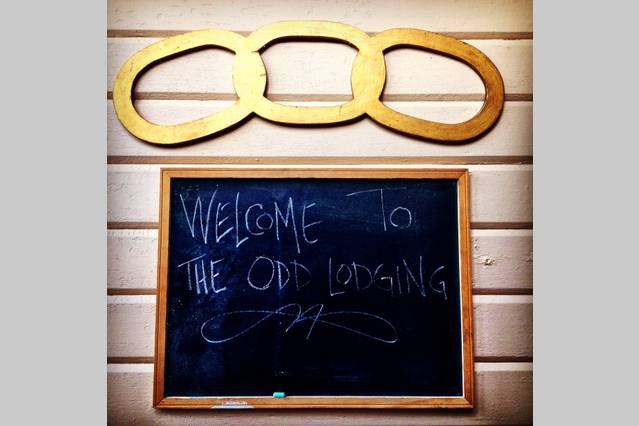 WELCOME TO
THE ODD LODGING